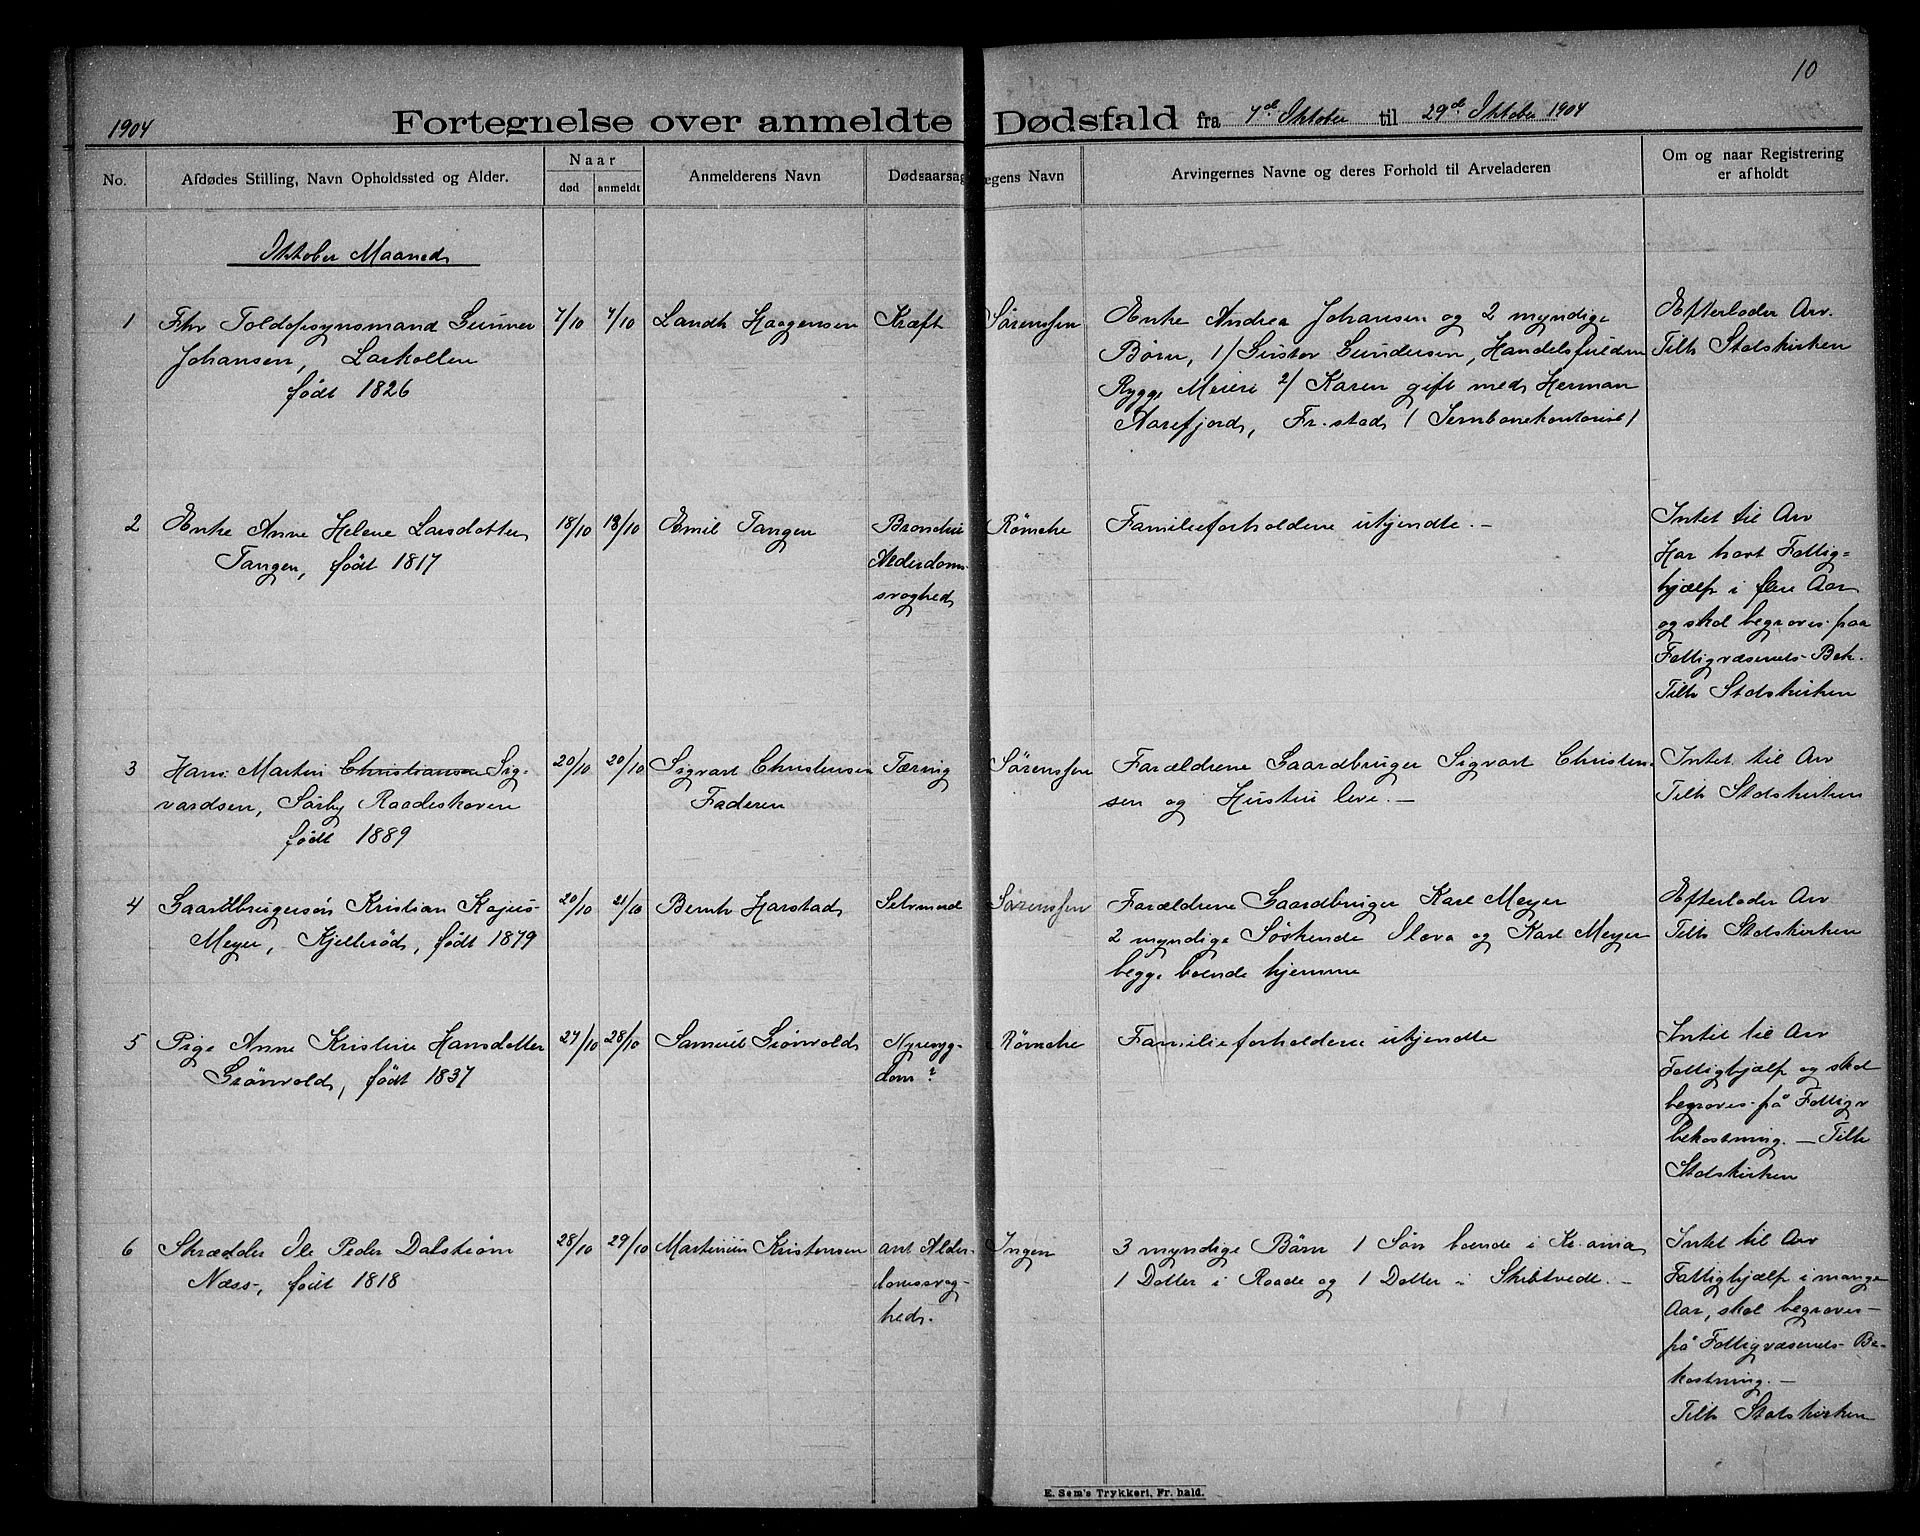 10
1904 Fortegnelse over anmeldte Dødsfald fra 7de Oktober til 29de Oktober 1904
No.
Afdødes Stilling, Navn Opholdssted og Alder.
Naar
død
anmeldt
Anmelderens Navn
Dødsaarsag
ægens Navn
Arvingernes Navne og deres Forhold til Arveladeren
Om og naar Registrering
er afholdt
Oktober Maaned
1
Fhv Toldopsynsmand Gunner
Johansen, Larkollen
født 1826
7/10
7/10
Landh Haagensen
Kræft
Sørenssen
Enke Andrea Johansen og 2 myndige
Børn, 1/ Gustav Gundersen, Handelsfuldm
Rygge Meieri 2/ Karen gift med Herman
Aarefjord, Fr.stad / Jernbanekontorist /
Efterlader Arv.
Tilh Statskirken
2
Enke Anne Helene Larsdatter
Tangen, født 1817
18/10
18/10
Emil Tangen
Bronchit
Alderdoms
svaghed
Rømcke
Familieforholdene ukjendte. —
Intet til Arv
Har havt Fattig=
hjælp i flere Aar
og skal begraves paa
Fattigvæsenets Bek.
Tilh Statskirken
3
Hans Martin Christiansen Sig-
vardsen, Sørby Raadeskoven
født 1889
20/10
20/10
Sigvart Christensen
Faderen
Tæring
Sørenssen
Forældrene Gaardbruger Sigvart Christen-
sen og Hustru leve. —
Intet til Arv
Tilh Statskirken
4
Gaardbrugersøn Kristian Kajus
Meyer, Kjellerød, født 1879
20/10
21/10
Bernh Harstad
Selvmord
Sørenssen
Forældrene Gaardbruger Karl Meyer
2 myndige Søskende Olava og Karl Meyer
begge boende hjemme
Efterlader Arv
Tilh Statskirken
5
Pige Anne Kristine Hansdatter
Grønvold, født 1837
27/10
28/10
Samuel Grønvold
Nyresyg-
dom?
Rømcke
Familieforholdene ukjendte
Intet til Arv
Fattighjælp og skal
begraves på Fattigv
bekostning. — Tilh
Statskirken
6
Skrædder Ole Peder Dalstrøm
Næss, født 1818
28/10
29/10
Martinius Kristensen
ant Alder-
domssvag-
hed.
Ingen
3 myndige Børn 1 Søn boende i Kr.ania
1 Datter i Raade og 1 Datter i Skibtvedt. —
Intet til Arv
Fattighjælp i mange
Aar, skal begraves
på Fattigvæsenets Be-
kostning. —
Tilh Statskirken
E. Sem's Trykkeri, Fr. hald.